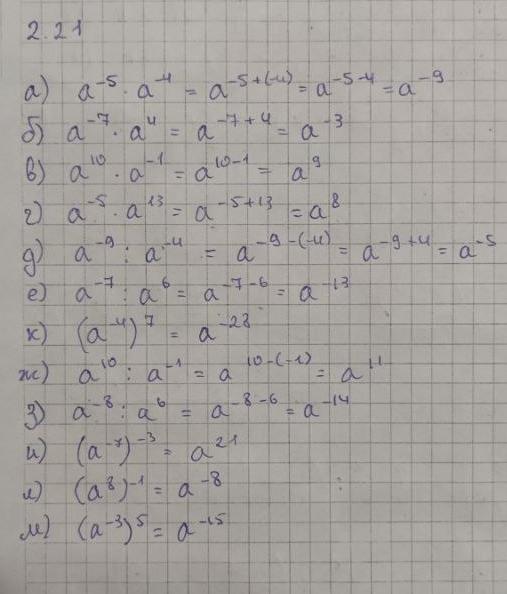 2.21
а) a⁻⁵ · a⁻⁴ = a⁻⁵⁺⁽⁻⁴⁾ = a⁻⁵⁻⁴ = a⁻⁹
б) a⁻⁷ · a⁴ = a⁻⁷⁺⁴ = a⁻³
в) a¹⁰ · a⁻¹ = a¹⁰⁻¹ = a⁹
г) a⁻⁵ · a¹³ = a⁻⁵⁺¹³ = a⁸
д) a⁻⁹ : a⁻⁴ = a⁻⁹⁻⁽⁻⁴⁾ = a⁻⁹⁺⁴ = a⁻⁵
е) a⁻⁷ : a⁶ = a⁻⁷⁻⁶ = a⁻¹³
к) (a⁻⁴)⁷ = a⁻²⁸
ж) a¹⁰ : a⁻¹ = a¹⁰⁻⁽⁻¹⁾ = a¹¹
з) a⁻⁸ : a⁶ = a⁻⁸⁻⁶ = a⁻¹⁴
и) (a⁻⁷)⁻³ = a²¹
л) (a⁸)⁻¹ = a⁻⁸
м) (a⁻³)⁵ = a⁻¹⁵